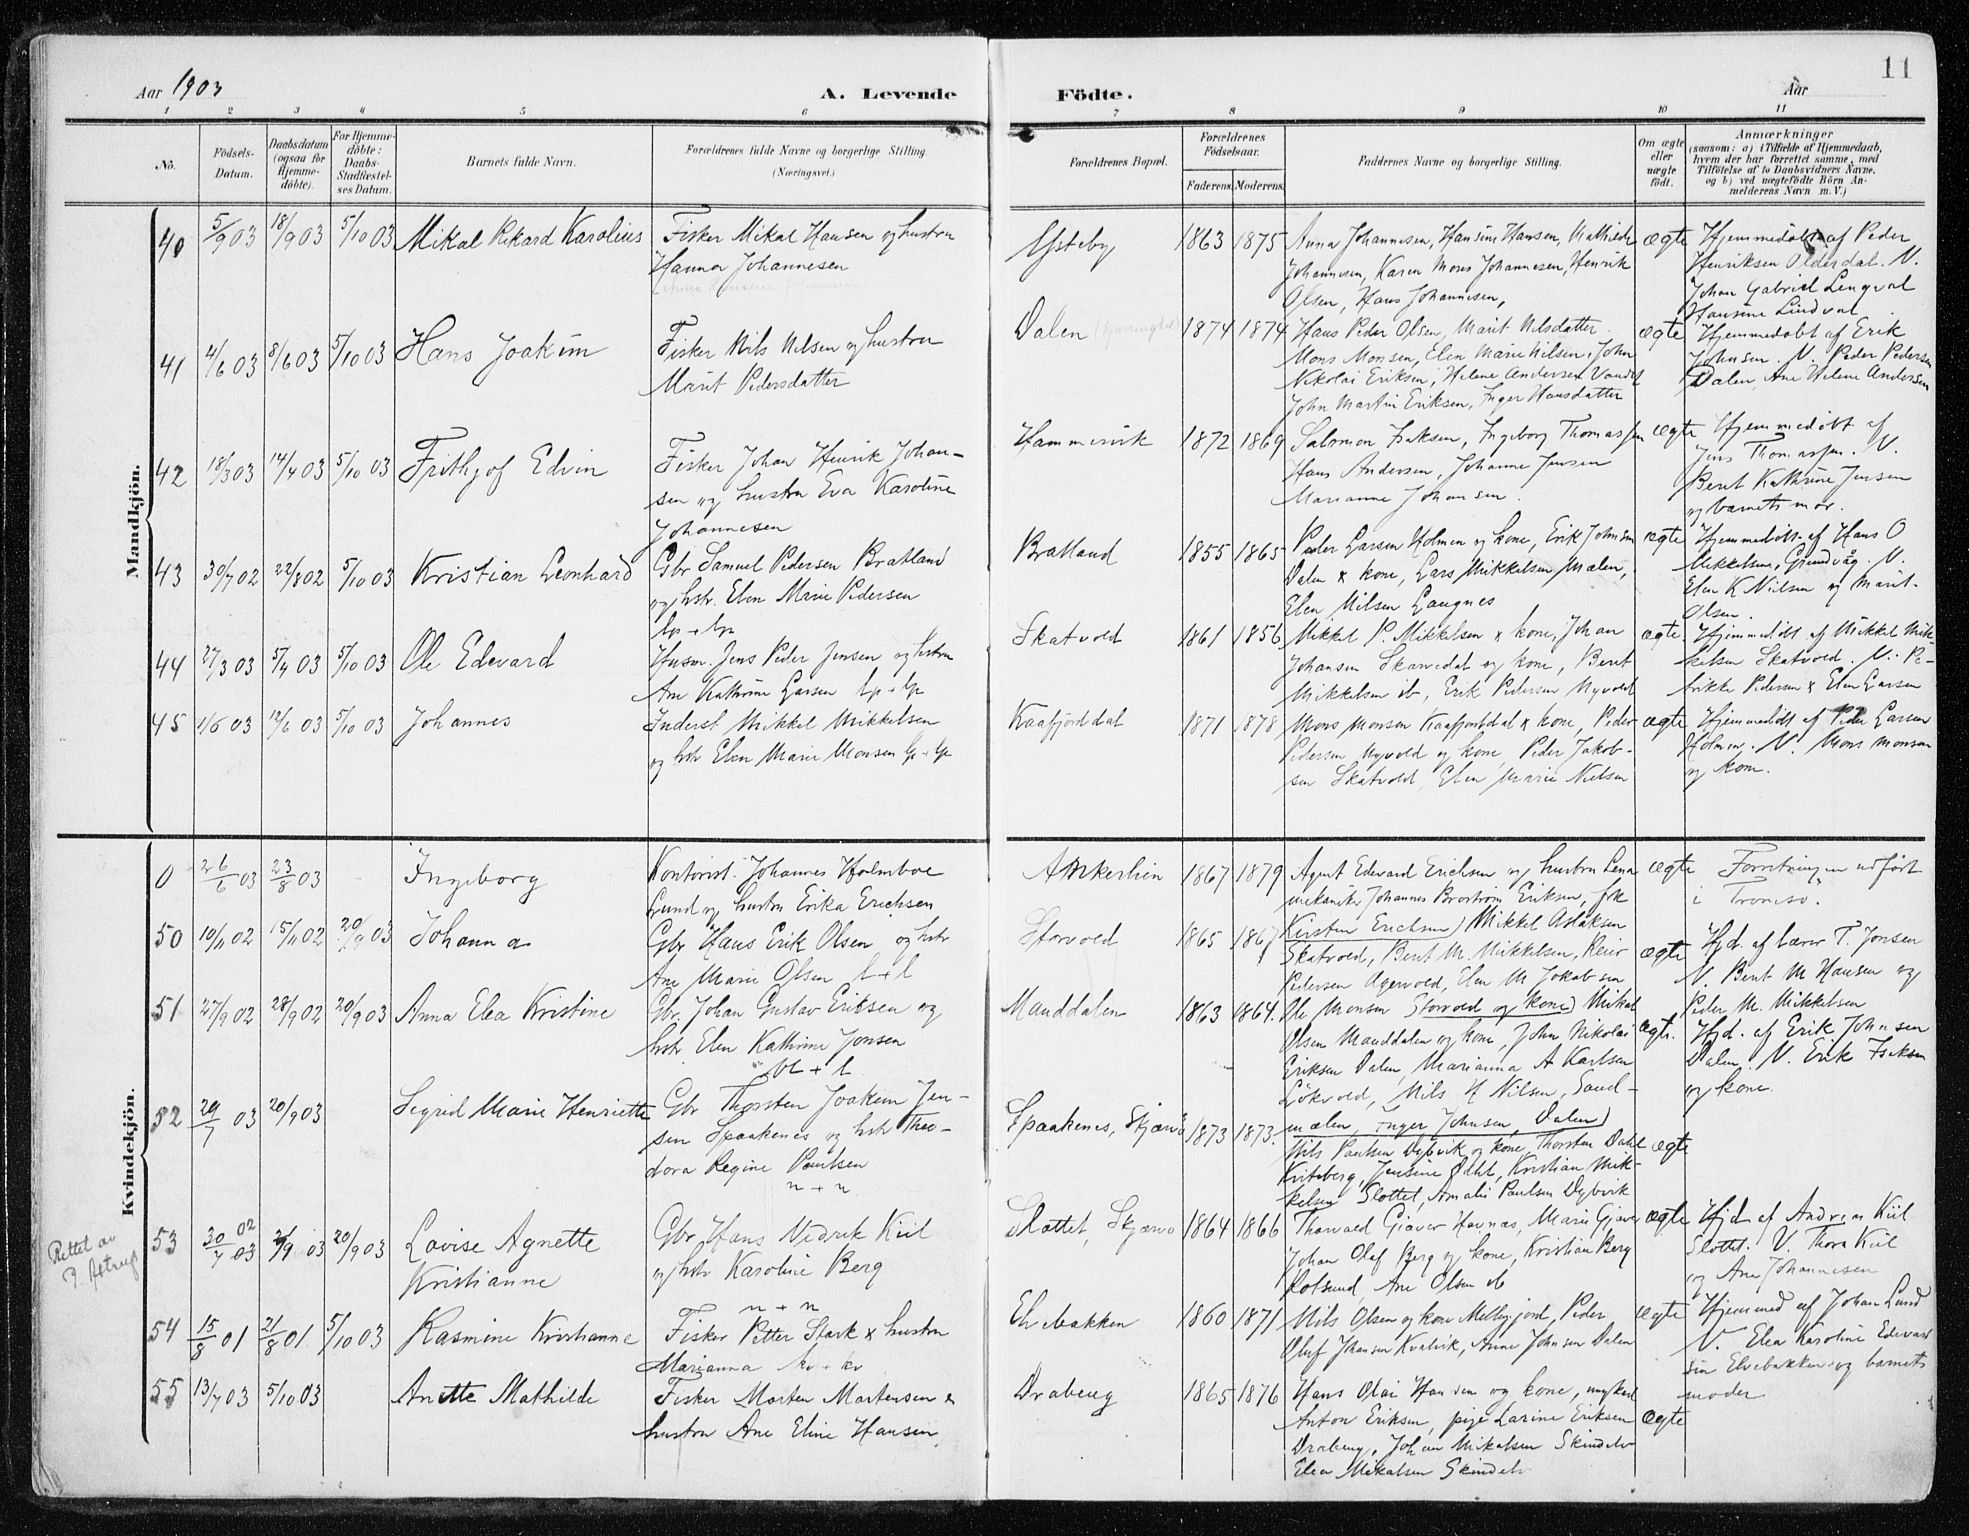 11
Aar 1903 A. Levende Födte. Aar
1 2 3 4 5 6 7 8 9 10 11
No. Födsels-Datum. Daabsdatum (ogsaa for Hjemme-döbte). For Hjemme-döbte: Daabs-Stadfæstel-ses Datum. Barnets fulde Navn. Forældrenes fulde Navne og borgerlige Stilling. (Næringsvei.) Forældrenes Bopæl. Forældrenes Födselsaar. Faderens. Moderens. Faddernes Navne og borgerlige Stilling. Om ægte eller uægte födt. Anmærkninger (saasom: a) i Tilfælde af Hjemmedaab, hvem der har forrettet samme, med Tilföielse af to Daabsvidners Navne, og b) ved uægtefödte Börn An-melderens Navn m. V.)
Mandkjön.
40 5/9 03 18/9 03 5/10 03 Mikal Rikard Karolius Fisker Mikal Hansen og hustru
Hanna Johannesen
Ysteby 1863 1875 Anna Johannesen, Hansine Hansen, Mathilde
Johannesen, Karen Mons Johannesen, Henrik
Olsen, Hans Johannesen,
ægte Hjemmedøbt af Peder
Henriksen Olderdal. V.
Johan Gabriel Lengval
Hansine Lindval
41 4/6 03 8/6 03 5/10 03 Hans Joakim Fisker Nils Nilsen og hustru
Marit Pedersdatter
Dalen 1874 1874 Hans Peder Olsen, Marit Nilsdatter
Mons Monsen, Elen Marie Nilsen, John
Nikolai Eriksen, Helene Andersen
John Martin Eriksen, Inger Hansdatter
ægte Hjemmedøbt af Erik
Johnsen. V. Peder Pedersen
Dalen, Ane Helene Andersen
42 18/3 03 14/4 03 5/10 03 Frithjof Edvin Fisker Johan Henrik Johan-
sen og hustru Eva Karoline
Johannesen
Hammervik 1872 1869 Salomon Isaksen, Ingeborg Thomassen
Hans Andersen, Johanne Jensen
Marianne Johansen.
ægte Hjemmedøbt af
Jens Thomassen. V.
Berit Kathrine Jensen
og barnets mor.
43 30/7 02 22/8 02 5/10 03 Kristian Leonhard Gbr Samuel Pedersen Bratland
og hstr. Elen Marie Pedersen
lp + lp
Bratland 1855 1865 Peder Larsen Holmen og kone, Erik Johnsen
Dalen & kone, Lars Mikkelsen Mælen,
Elen Nilsen Langnes
ægte Hjemmedøbt af Hans O
Mikkelsen, Grundvåg. V.
Elen K Nilsen og Marit
Olsen.
44 27/3 03 5/4 03 5/10 03 Ole Edevard Husm. Jens Peder Jensen og hustru
Ane Kathrine Larsen lp + lp
Skatvold 1861 1856 Mikkel P. Mikkelsen & kone, Johan
Johansen Skarvedal og kone, Berit
Mikkelsen ib, Erik Pedersen Nyvold
ægte Hjemmedøbt af Mikkel Mik-
kelsen Skatvold. V. Pe-
trikke Pedersen & Elen Larsen
45 1/6 03 12/6 03 5/10 03 Johannes Inderst Mikkel Mikkelsen
og hstr Elen Marie Monsen lp + lp
Kaafjorddal 1871 1878 Mons Monsen Kaafjorddal & kone, Peder
Pedersen Nyvold og kone, Peder Jakob-
sen Skatvold, Elen Marie Nielsen
ægte Hjemmedøbt af Peder Larsen
Holmen. V. Mons Monsen
og kone.
Kvindekjön.
0 26/6 03 23/8 03 Ingeborg Kontorist Johannes Holmboe
Lund og hustru Erika Erichsen
Ankerlien 1867 1879 Agent Edevard Erichsen og hustru Lena
mekaniker Johannes Broström Eriksen, frk
Kirsten Erichsen)
ægte Forretningen udført
i Tromsö.
50 10/11 02 15/11 02 20/9 03 Johanna Gbr Hans Erik Olsen og hstr
Ane Marie Olsen l + l
Storvold 1865 1867 Mikkel Aslaksen
Skatvold, Berit M. Mikkelsen, Reier
Pedersen Agervold, Elen M Jakobsen
Ole Monsen Storvold og kone)
ægte Hjd. af lærer T. Jonsen
V. Berit M Hansen og
Peder M. Mikkelsen
51 27/9 02 28/9 02 20/9 03 Anna Elea Kristine Gbr. Johan Gustav Eriksen og
hstr Elen Kathrine Jonsen
bl + l
Manddalen 1863 1864. Mikal
Olsen Manddalen og kone, John Nikolai
Eriksen Dalen, Marianna A Karlsen
Lökvold, Nils H Nilsen, Sand-
mælen, Inger Johnsen, Dalen)
ægte. Hjd. af Erik Johnsen
Dalen. V. Erik Isaksen
og kone.
52 29/7 03 20/9 03 Sigrid Marie Henriette Gbr Thorsten Joakim Jen-
sen Spaakenes og hstr Theo-
dora Regine Paulsen
n + n
Spaakenes, Skjærvö 1873 1873. Nils Paulsen Dybvik og kone, Thorsten Dahl
Kviteberg, Jensine Dahl, Kristian Mik-
kelsen Slottet, Amalie Paulsen Dybvik
ægte
Rettet av
P. Astrup
53 30/7 02 03 2/9 03 20/9 03 Lovise Agnette
Kristianne
Gbr. Hans Vedrik Kiil
og hstr Karoline Berg
n + n
Slottet, Skjærvö 1864 1866 Thorvald Giæver Havnæs, Marie Giæver
Johan Olaf Berg og kone, Kristian Berg
Rotsund, Ane Olsen ib
ægte Hjd af Andreas Kiil
Slottet. V. Thora Kiil
og Ane Johannesen
54 15/8 01 21/8 01. 5/10 03 Rasmine Kristianne Fisker Petter Stark & hustru
Marianna kv + kv
Elvebakken 1860 1871 Nils Olsen og kone Melbyjord, Peder
Oluf Johansen Kvalvik, Anne Johnsen Dalen
ægte Hjemmed af Johan Lund
V. Elea Karoline Edevard
sen Elvebakken og barnets
moder
55 13/7 03 5/10 03 Anette Mathilde Fisker Morten Mortensen &
hustru Ane Eline Hansen
Drabeng 1865 1876 Hans Olai Hansen og kone, ungkarl
Anton Eriksen, pige Larine Eriksen
Drabeng, Johan Mikalsen Skindelv
Elea Mikalsen Skindelv
ægte